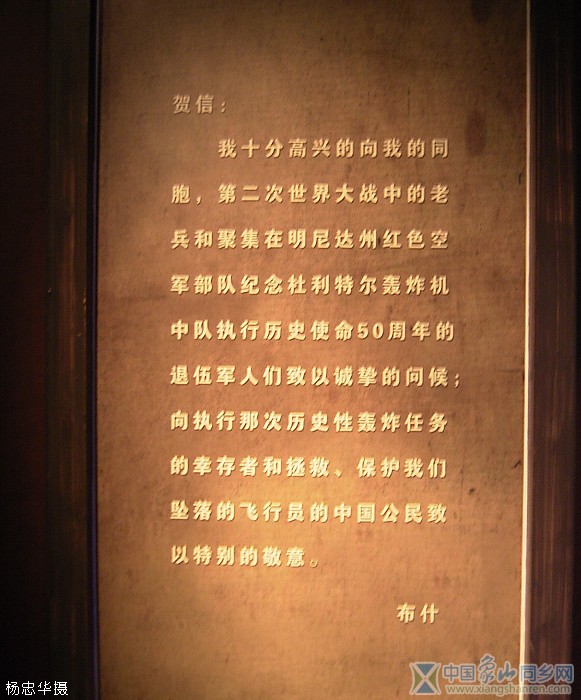 贺信：
我十分高兴的向我的同
胞，第二次世界大战中的老
兵和聚集在明尼达州红色空
军部队纪念杜利特尔轰炸机
中队执行历史使命50周年的
退伍军人们致以诚挚的问候；
向执行那次历史性轰炸任务
的幸存者和拯救、保护我们
坠落的飞行员的中国公民致
以特别的敬意。
布什
杨忠华摄
中国象山同乡网
www.xiangshanren.com